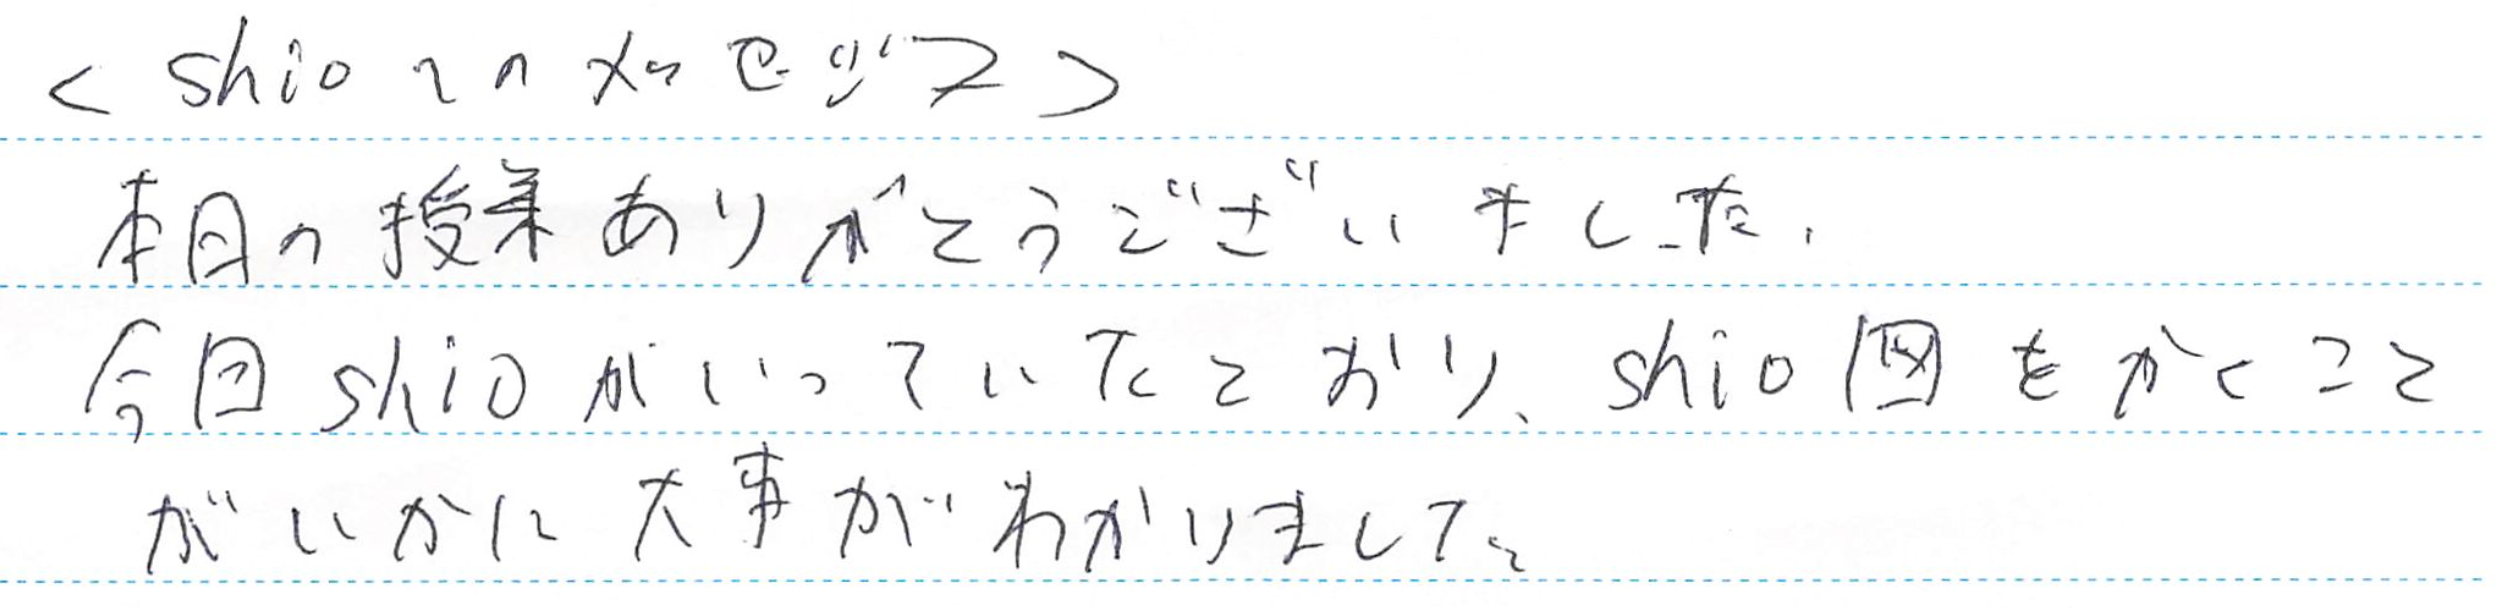 <shioへのメッセージ>
本日の授業ありがとうございました.
今回shioがいっていたとおり、shio図をかくこと
がいかに大事がわかりました